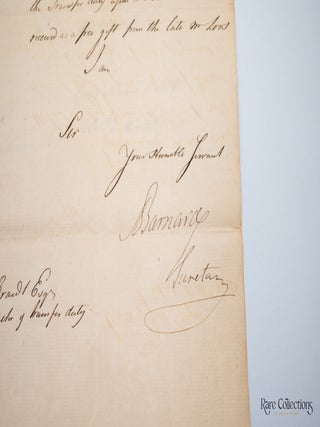 the Transfer duty upon a
received as a free gift from the late Mr
I am
Sir
Your Humble Servant
Barnard
Secretary
Brandt Esqr
of transfer duty.
Rare Collections